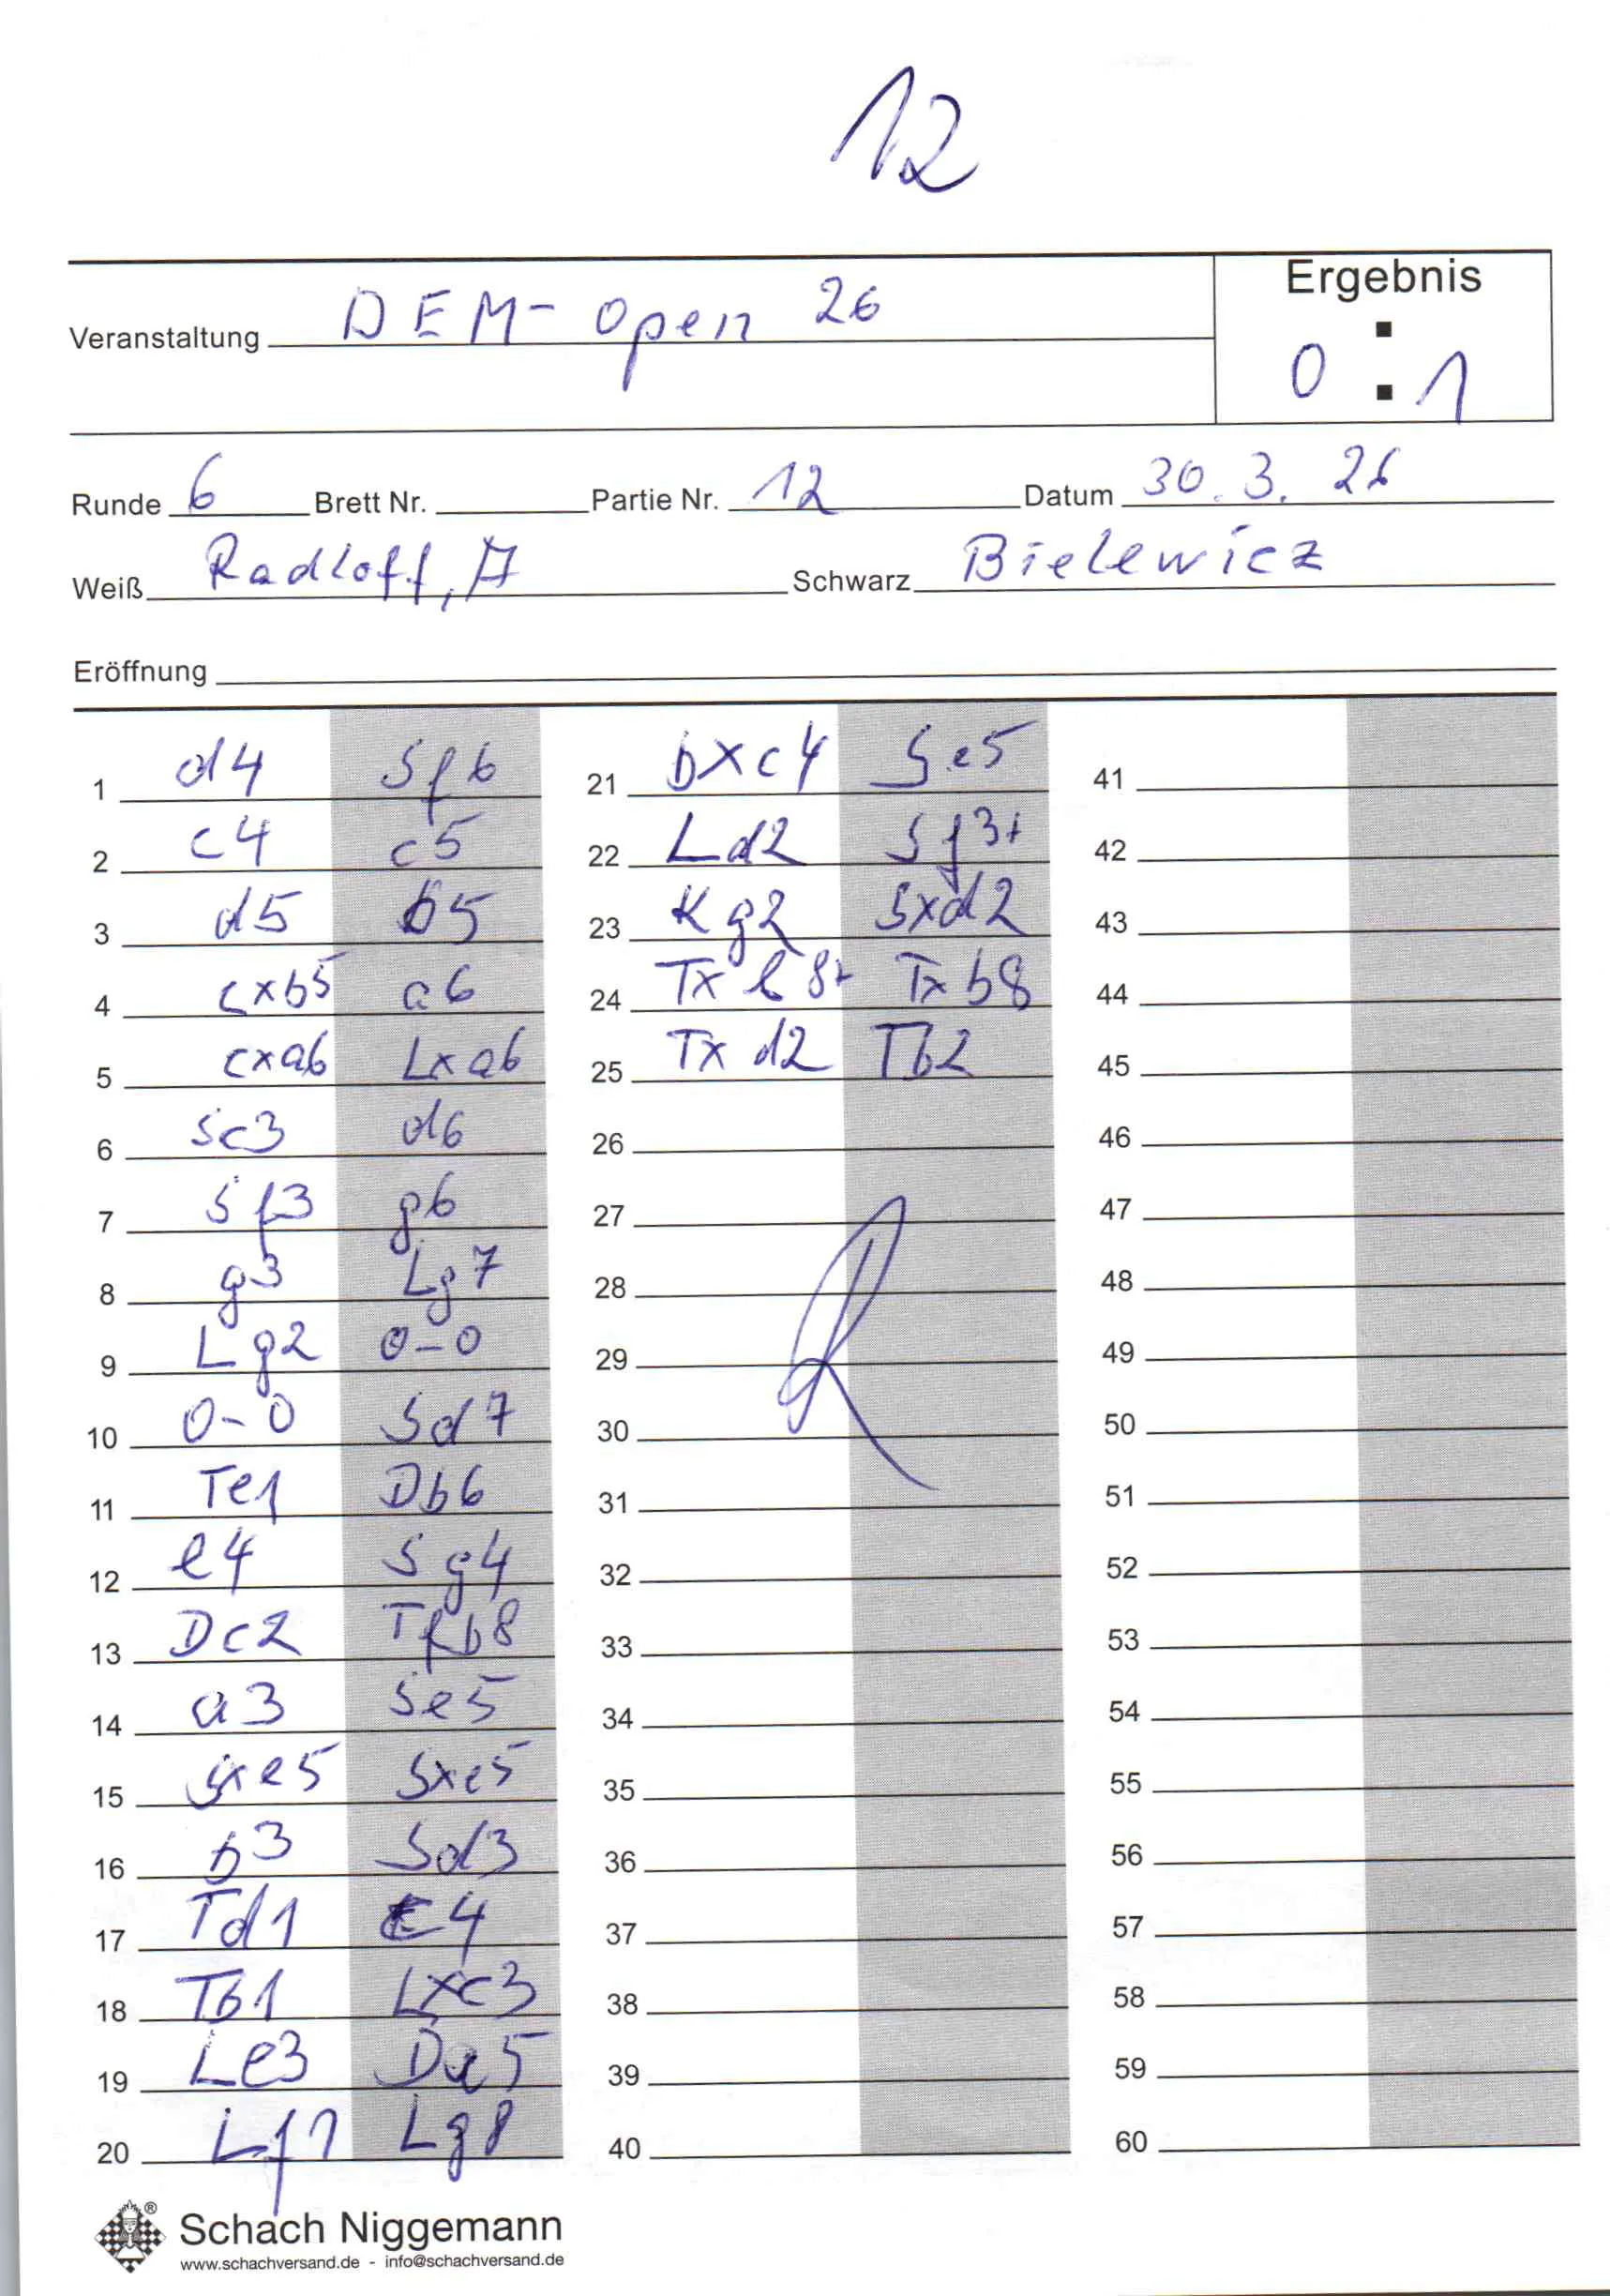 12
Ergebnis
Veranstaltung DEM- open 26
0 : 1
Runde 6 Brett Nr. Partie Nr. 12 Datum 30. 3. 26
Weiß Radloff, A Schwarz Bielewicz
Eröffnung
1 d4 Sf6
2 c4 c5
3 d5 b5
4 cxb5 a6
5 cxa6 Lxa6
6 Sc3 d6
7 Sf3 g6
8 g3 Lg7
9 Lg2 0-0
10 0-0 Sd7
11 Te1 Db6
12 e4 Sg4
13 Dc2 Tfb8
14 a3 Se5
15 Sxe5 Sxe5
16 b3 Sd3
17 Td1 c4
18 Tb1 Lxc3
19 Le3 Da5
20 Lf1 Lg8
21 bxc4 Se5
22 Ld2 Sf3+
23 Kg2 Sxd2
24 Txb8+ Txb8
25 Txd2 Tb2
26
27
28
29
30
31
32
33
34
35
36
37
38
39
40
41
42
43
44
45
46
47
48
49
50
51
52
53
54
55
56
57
58
59
60
Schach Niggemann
www.schachversand.de - info@schachversand.de